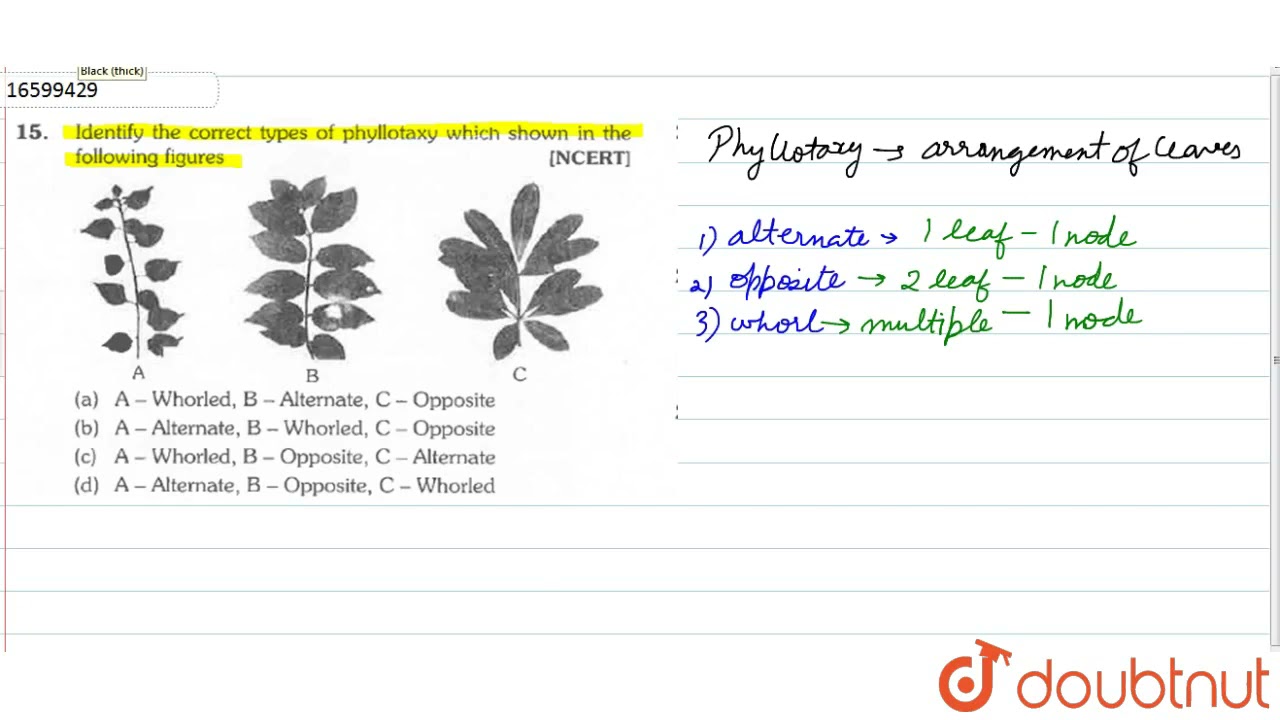 Black (thick)
16599429
15. Identify the correct types of phyllotaxy which shown in the
following figures [NCERT]
A B C
(a) A – Whorled, B – Alternate, C – Opposite
(b) A – Alternate, B – Whorled, C – Opposite
(c) A – Whorled, B – Opposite, C – Alternate
(d) A – Alternate, B – Opposite, C – Whorled
Phyllotaxy → arrangement of leaves
1) alternate → 1 leaf – 1 node
2) opposite → 2 leaf – 1 node
3) whorl → multiple – 1 node
doubtnut